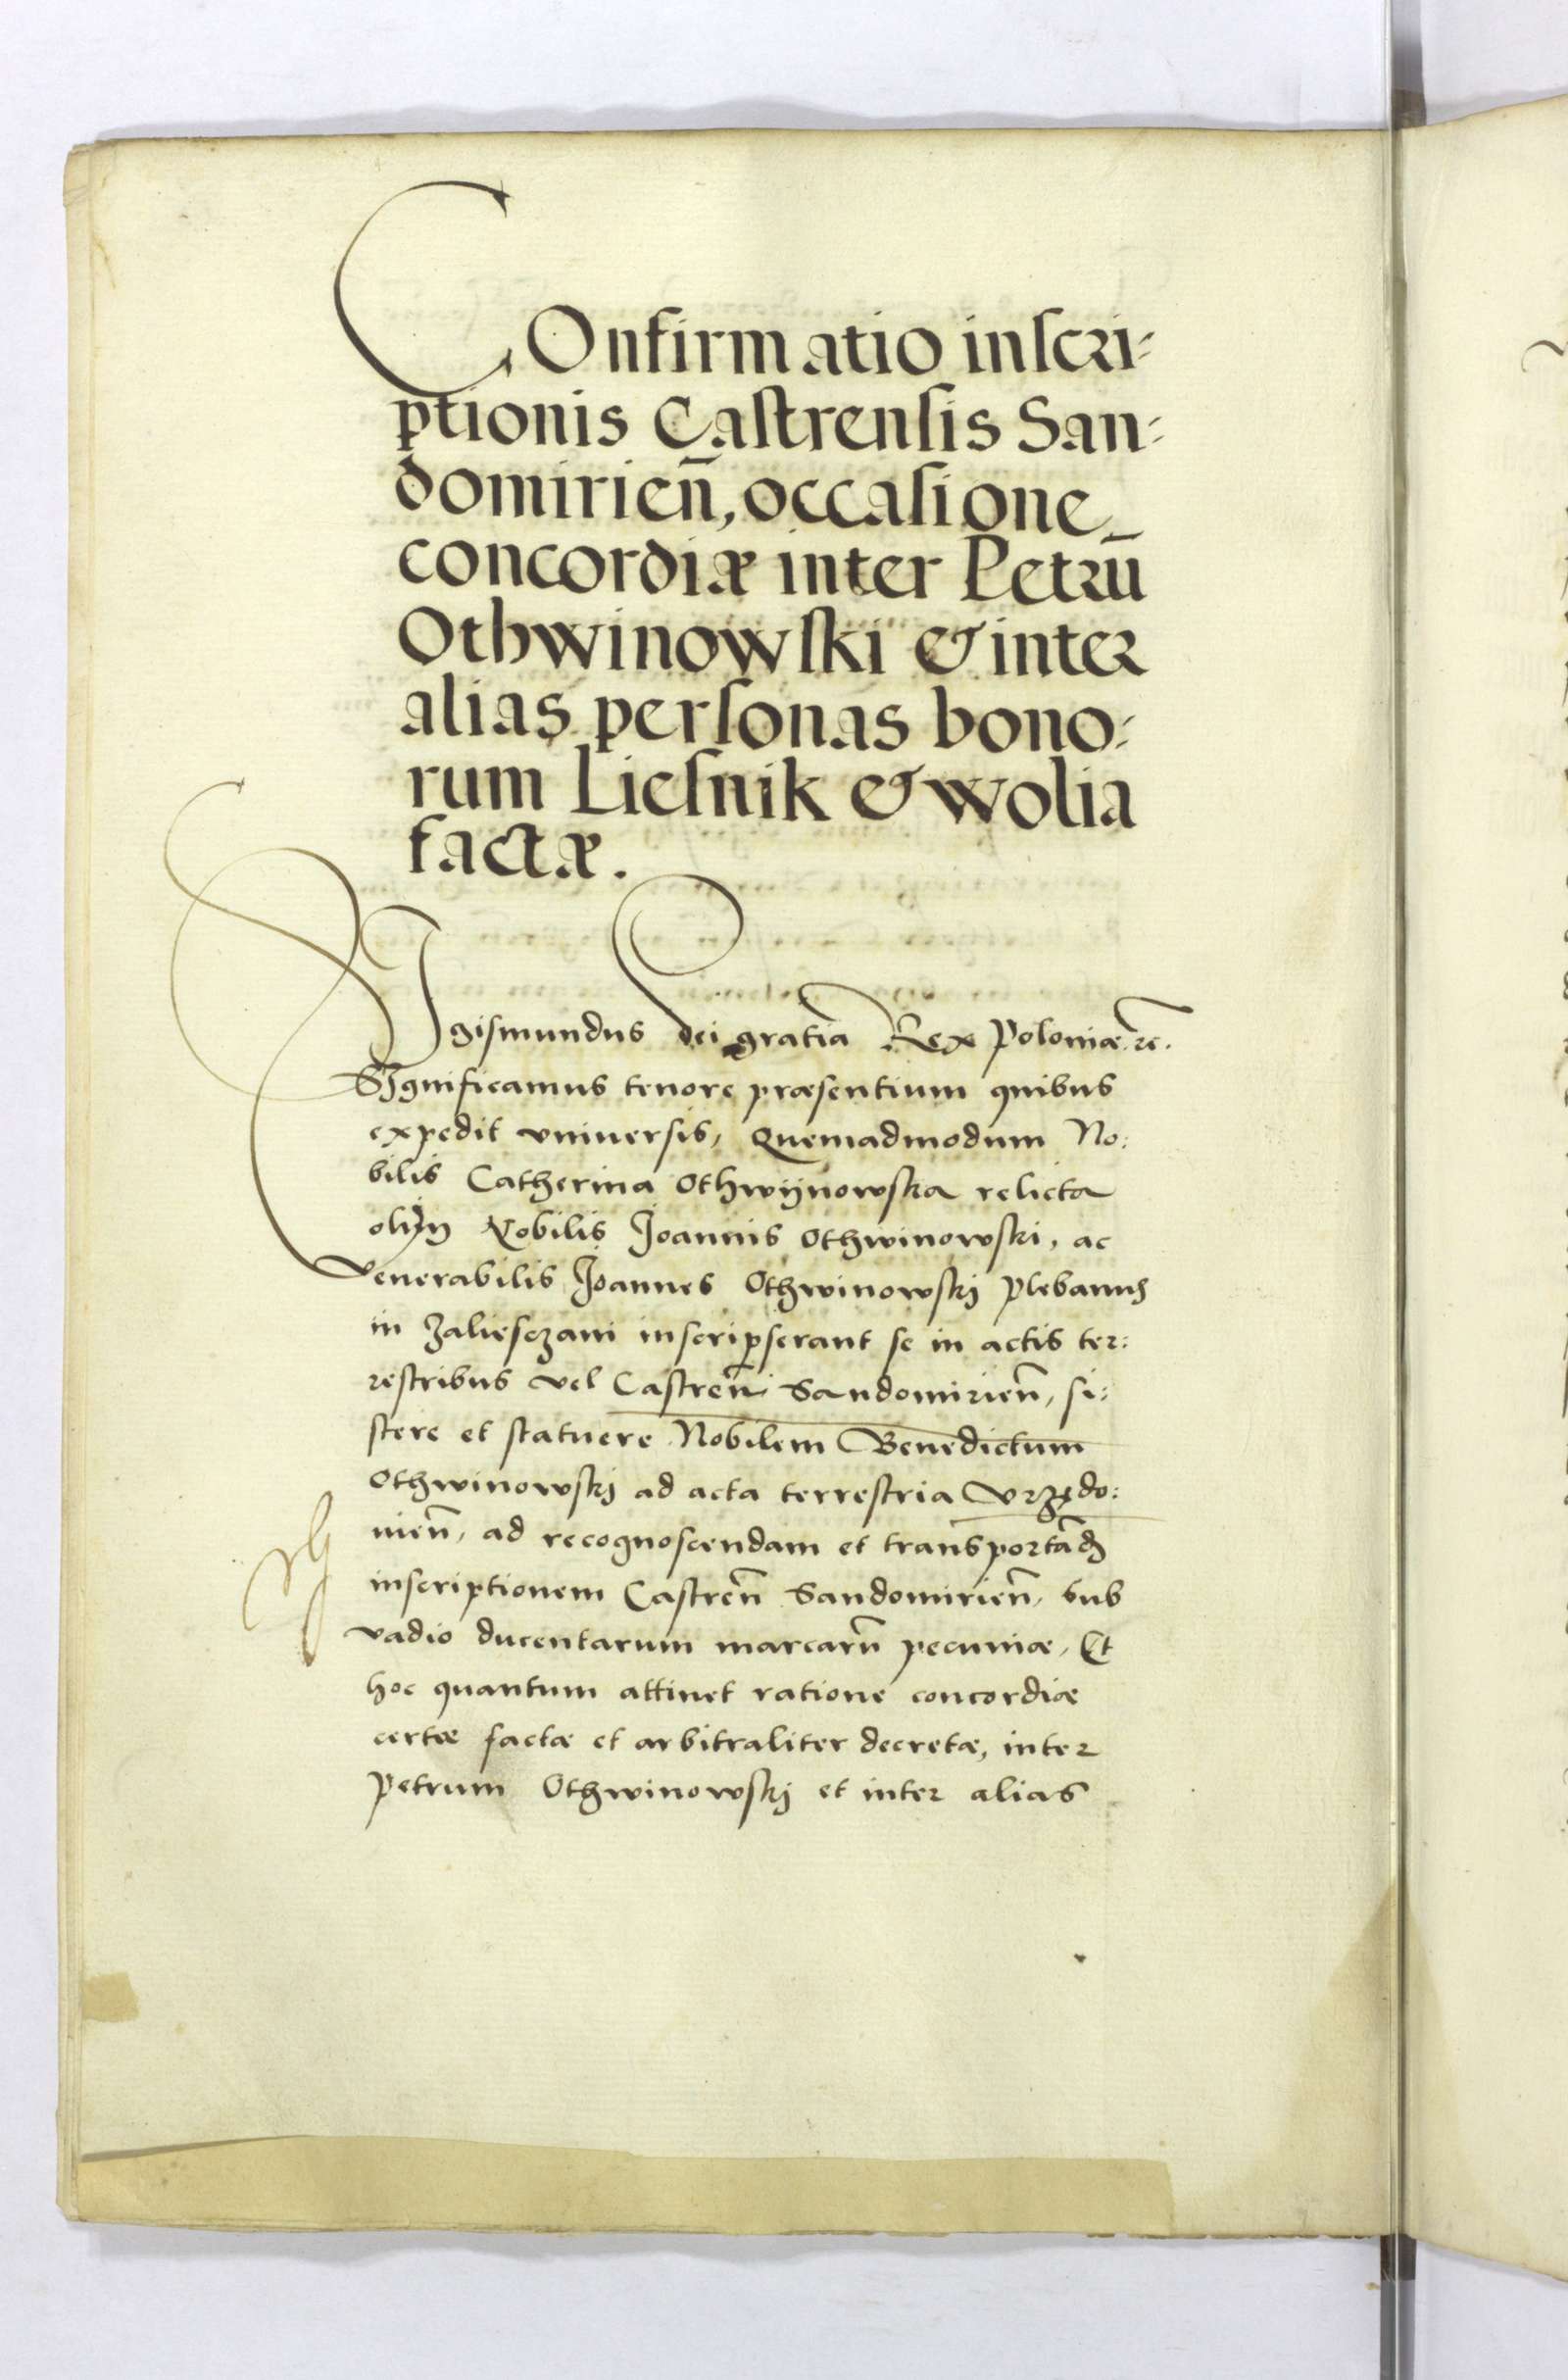 COnfirmatio inſcri⸗
ptionis Caſtrenſis San⸗
domirien̄, occaſione
concordiæ inter Petrū
Othwinowſki & inter
alias perſonas bono⸗
rum Lieſnik & wolia
factæ.
SIgiſmundus dei gratia Rex Poloniæ ꝛc.
SIgnificamus tenore præsentium quibus
expedit vniuersis, Quemadmodum No:
bilis Catherina Othwijnowska relicta
olijm Nobilis Joannis Othwinowski, ac
Venerabilis Joannes Othwinowskj Plebanus
in Zaliesczani inscripserant se in actis ter:
restribus vel Castren̄ Sandomirien̄, si:
stere et statuere Nobilem Benedictum
Othwinowskj ad acta terrestria Vrzędo:
uien̄, ad recognoscendam et transportādā
inscriptionem Castren̄ Sandomirien̄, sub
vadio ducentarum marcarū pecuniæ, Et
hoc quantum attinet ratione concordiæ
certæ factæ et arbitraliter decretæ, inter
Petrum Othwinowskj et inter alias